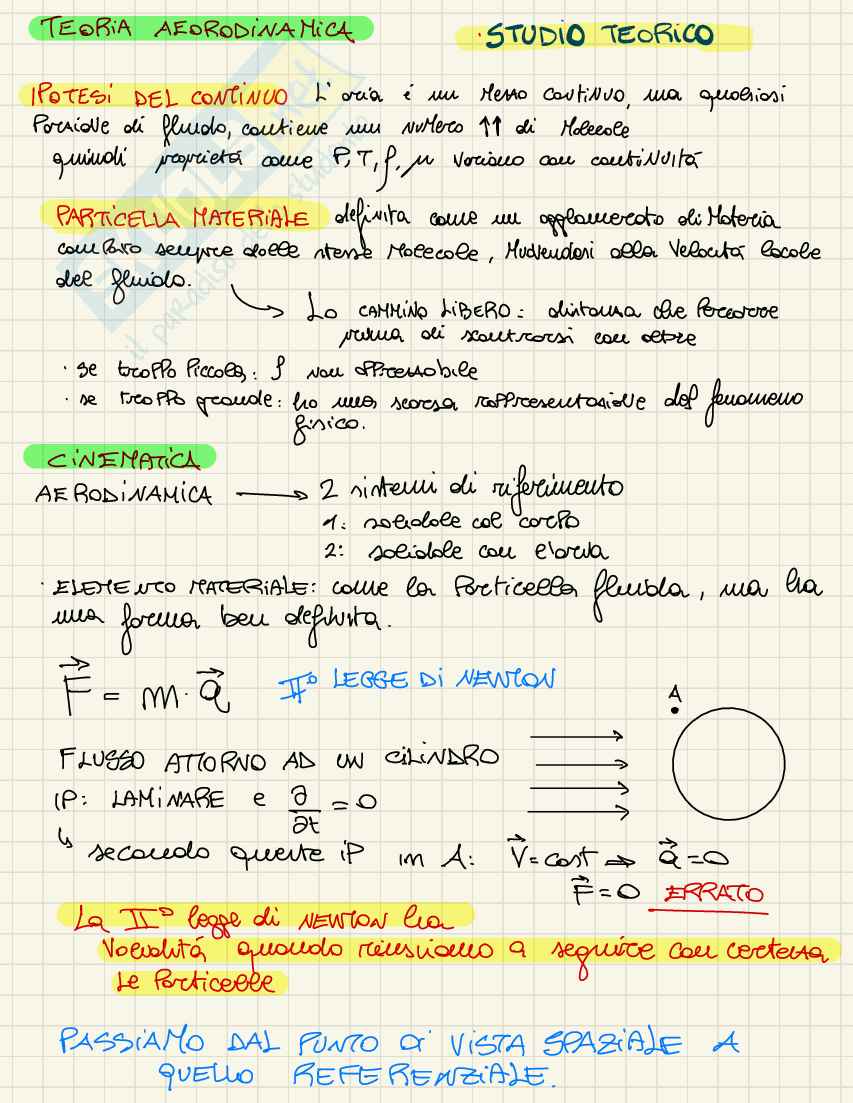 TEORIA AEORODINAMICA
· STUDIO TEORICO
IPOTESI DEL CONTINUO L'aria è un mezzo continuo, una qualsiasi
porzione di fluido, contiene un numero ↑↑ di molecole
quindi proprietà come P, T, ρ, μ variano con continuità
PARTICELLA MATERIALE definita come un agglomerato di materia
composto sempre dalle stesse molecole, muovendosi alla velocità locale
del fluido.
Lo CAMMINO LIBERO: distanza che percorre
prima di scontrarsi con altre
· se troppo piccola: ρ non apprezzabile
· se troppo grande: ho una scarsa rappresentazione del fenomeno
fisico.
CINEMATICA
AERODINAMICA → 2 sistemi di riferimento
1: solidale col corpo
2: solidale con l'aria
· ELEMENTO MATERIALE: come la particella fluida, ma ha
una forma ben definita.
F⃗ = m · a⃗ II° LEGGE DI NEWTON
A
FLUSSO ATTORNO AD UN CILINDRO
IP: LAMINARE e ∂/∂t = 0
↳ secondo queste iP in A: V⃗ = cost ⇒ a⃗ = 0
F⃗ = 0 ERRATO
La II° legge di NEWTON ha
validità quando riusciamo a seguire con certezza
le particelle
PASSIAMO DAL PUNTO DI VISTA SPAZIALE A
QUELLO REFERENZIALE.
il paradiso dello studente